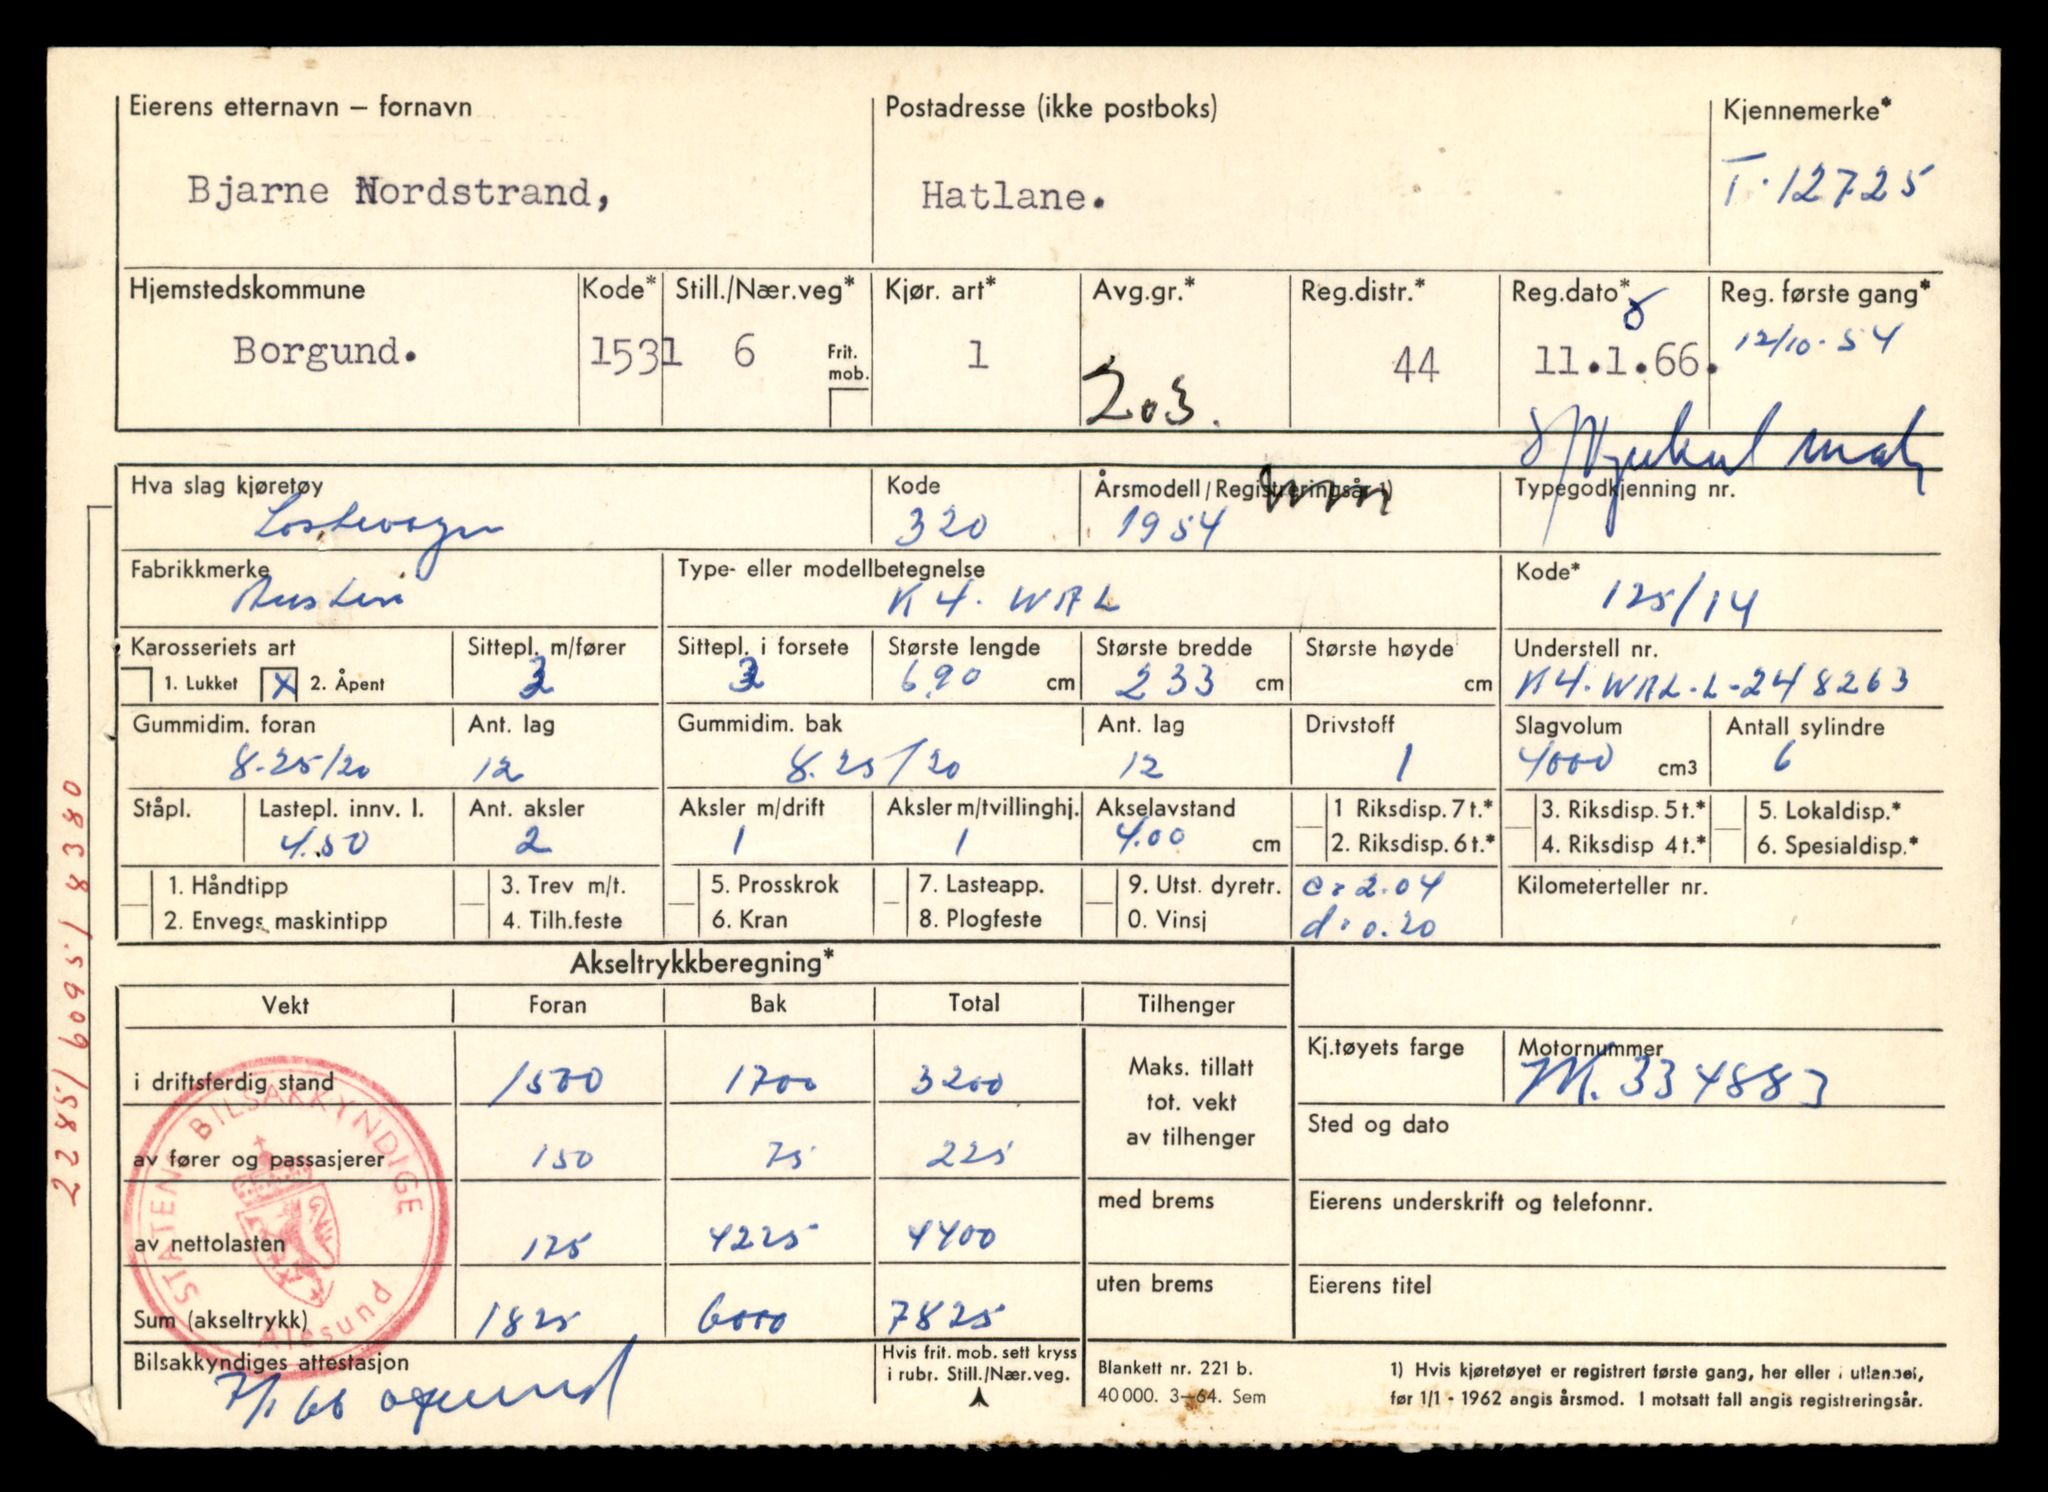 Eierens etternavn – fornavn Postadresse (ikke postboks) Kjennemerke*
Bjarne Nordstrand, Hatlane. T-12725
Hjemstedskommune Kode* Still./Nær.veg* Kjør. art* Avg.gr.* Reg.distr.* Reg.dato* Reg. første gang*
Borgund. 1531 6 Frit. mob. 1 203. 44 11.1.66. 12/10-54
Hva slag kjøretøy Kode Årsmodell/Registreringsår 1) Typegodkjenning nr.
Lastevogn 320 1954
Fabrikkmerke Type- eller modellbetegnelse Kode*
Austin K4. WAL 125/14
Karosseriets art Sittepl. m/fører Sittepl. i forsete Største lengde Største bredde Største høyde Understell nr.
1. Lukket X 2. Åpent 3 3 690 cm 233 cm cm K4.WAL.L-248263
Gummidim. foran Ant. lag Gummidim. bak Ant. lag Drivstoff Slagvolum Antall sylindre
8.25/20 12 8.25/20 12 1 4000 cm3 6
Ståpl. Lastepl. innv. l. Ant. aksler Aksler m/drift Aksler m/tvillinghj. Akselavstand 1 Riksdisp. 7 t.* 3. Riksdisp. 5 t.* 5. Lokaldisp.*
4.50 2 1 1 4.00 cm 2. Riksdisp. 6 t.* 4. Riksdisp 4 t.* 6. Spesialdisp.*
1. Håndtipp 3. Trev m/t. 5. Prosskrok 7. Lasteapp. 9. Utst. dyretr. c = 2.04 Kilometerteller nr.
2. Envegs maskintipp 4. Tilh.feste 6. Kran 8. Plogfeste 0. Vinsj d = 0.20
Akseltrykkberegning*
Vekt Foran Bak Total Tilhenger
i driftsferdig stand 1500 1700 3200 Maks. tillatt tot. vekt av tilhenger
Kj.tøyets farge Motornummer
M. 334883
av fører og passasjerer 150 75 225
Sted og dato
med brems Eierens underskrift og telefonnr.
av nettolasten 175 4225 4400
uten brems Eierens titel
Sum (akseltrykk) 1825 6000 7825
Bilsakkyndiges attestasjon Hvis frit. mob. sett kryss i rubr. Still./Nær.veg.
7/1 66
Blankett nr. 221 b.
40 000. 3–64. Sem
1) Hvis kjøretøyet er registrert første gang, her eller i utlandet,
før 1/1 - 1962 angis årsmod. I motsatt fall angis registreringsår.
STATENS BILSAKKYNDIGE
Ålesund
2285/6095/8380